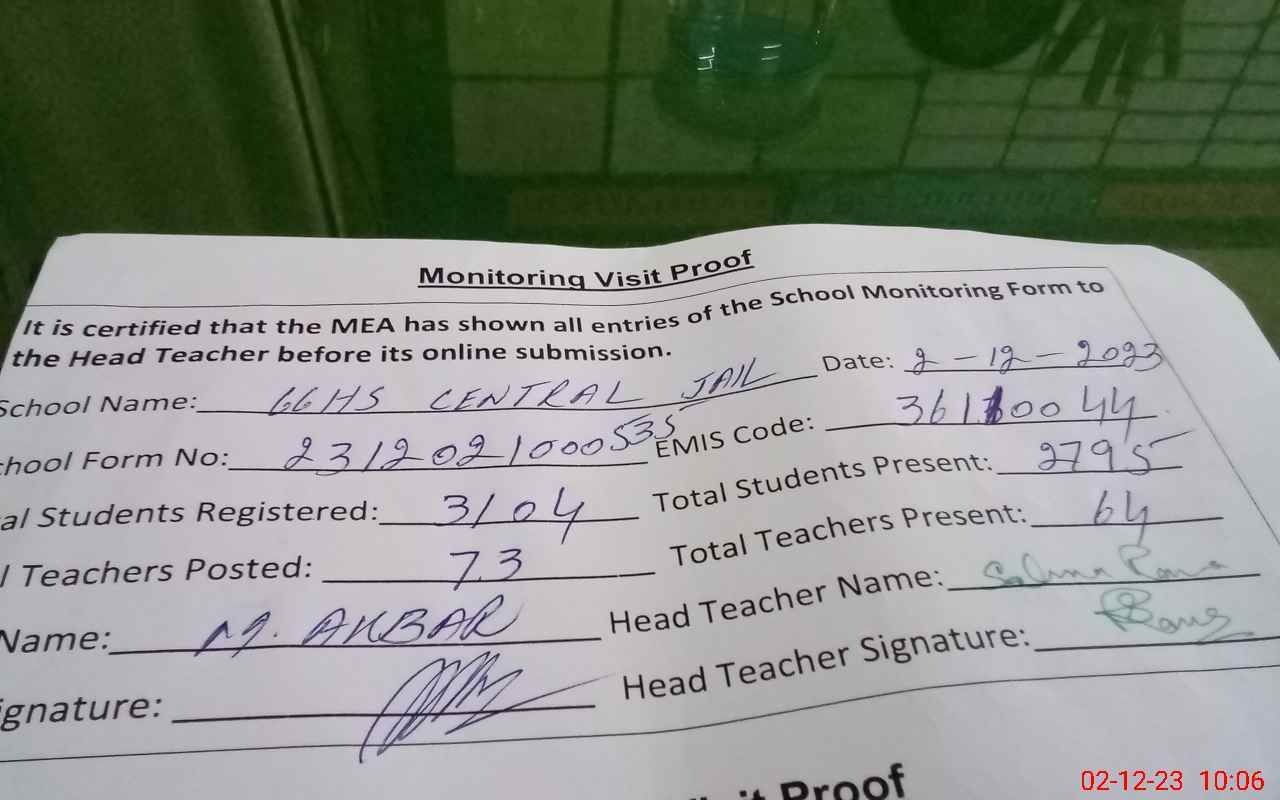 Monitoring Visit Proof
It is certified that the MEA has shown all entries of the School Monitoring Form to
the Head Teacher before its online submission.
School Name: GGHS CENTRAL JAIL Date: 2-12-2023
hool Form No: 2312021000535 EMIS Code: 36110044
al Students Registered: 3104 Total Students Present: 2795
l Teachers Posted: 73 Total Teachers Present: 64
Name: M. AKBAR Head Teacher Name: Salma Rana
ignature: Head Teacher Signature:
it Proof
02-12-23 10:06